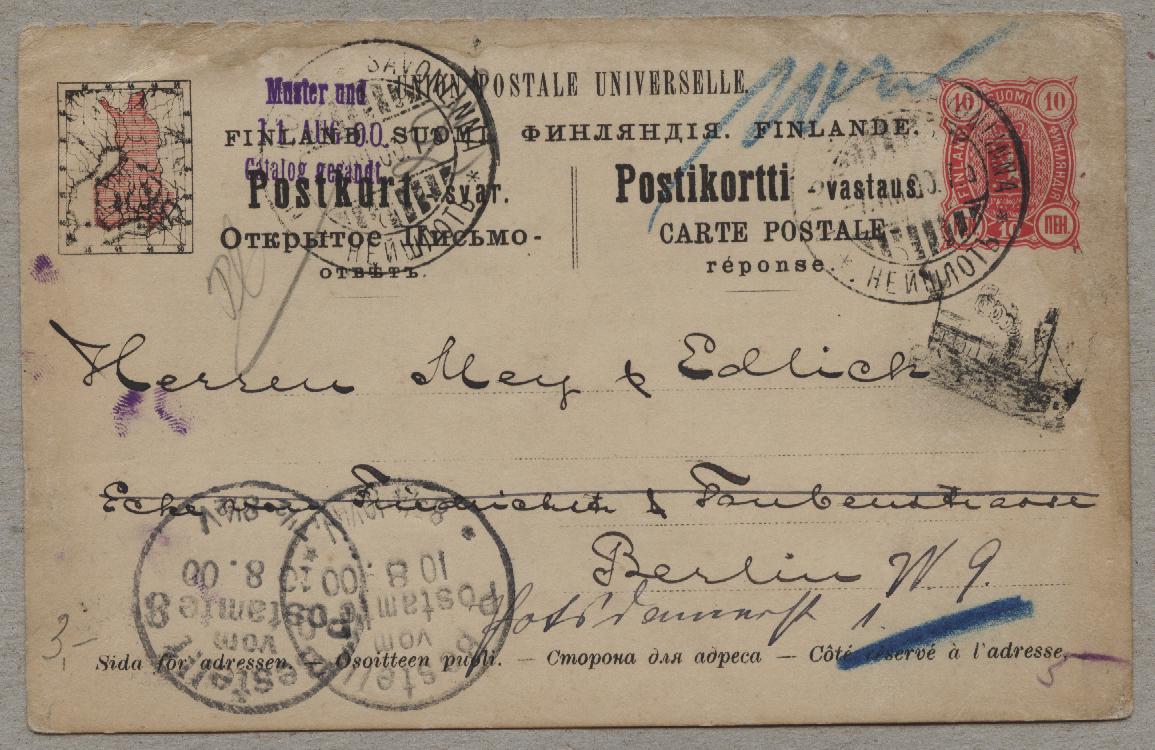 UNION POSTALE UNIVERSELLE.
Muster und
11. AUG. 00.
Catalog gesandt.
FINLAND. SUOMI. ФИНЛЯНДІЯ. FINLANDE.
Postkort - svar.
Postikortti - vastaus.
Открытое Письмо -
отвѣтъ.
CARTE POSTALE
réponse.
SAVONLINNA
НЕЙШЛОТЪ
НЕЙШЛОТЪ
10 SUOMI 10
FINLAND
10 ПЕН.
Herren Mey & Edlich
Ecke von Friedrichstr & Taubenstrasse
Berlin W 9.
Potsdamerst 1.
Bestellt
vom
Postamte 8
10 8 . 00
Bestellt
vom
Postamte
10 8 . 00
3,-
Sida för adressen. — Osoitteen puoli. — Сторона для адреса — Côté réservé à l'adresse.